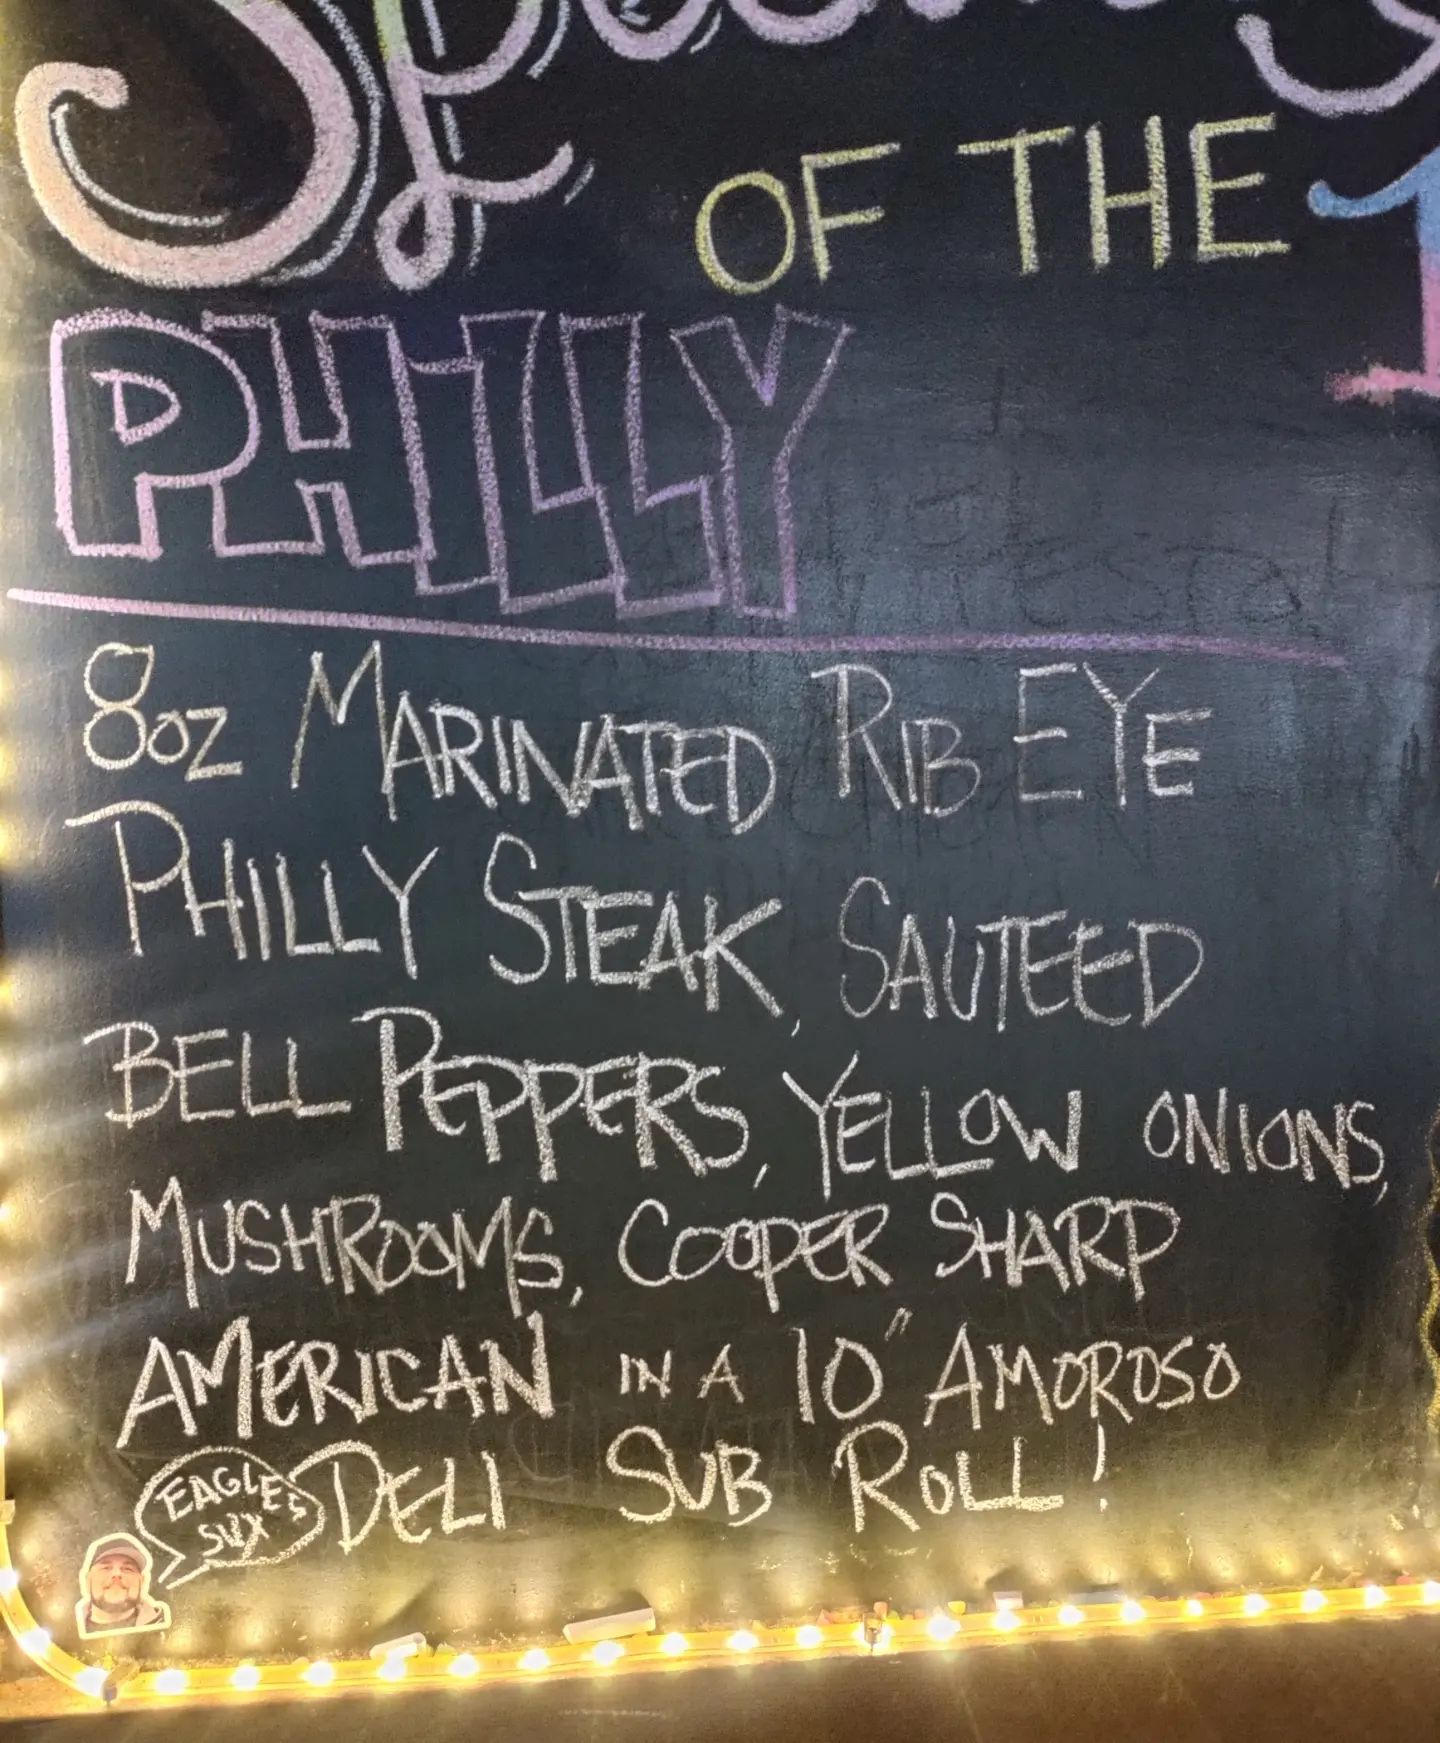 OF THE
PHILLY
8oz MARINATED RIB EYE
PHILLY STEAK, SAUTEED
BELL PEPPERS, YELLOW ONIONS,
MUSHROOMS, COOPER SHARP
AMERICAN IN A 10" AMOROSO
DELI SUB ROLL!
EAGLES
SUX